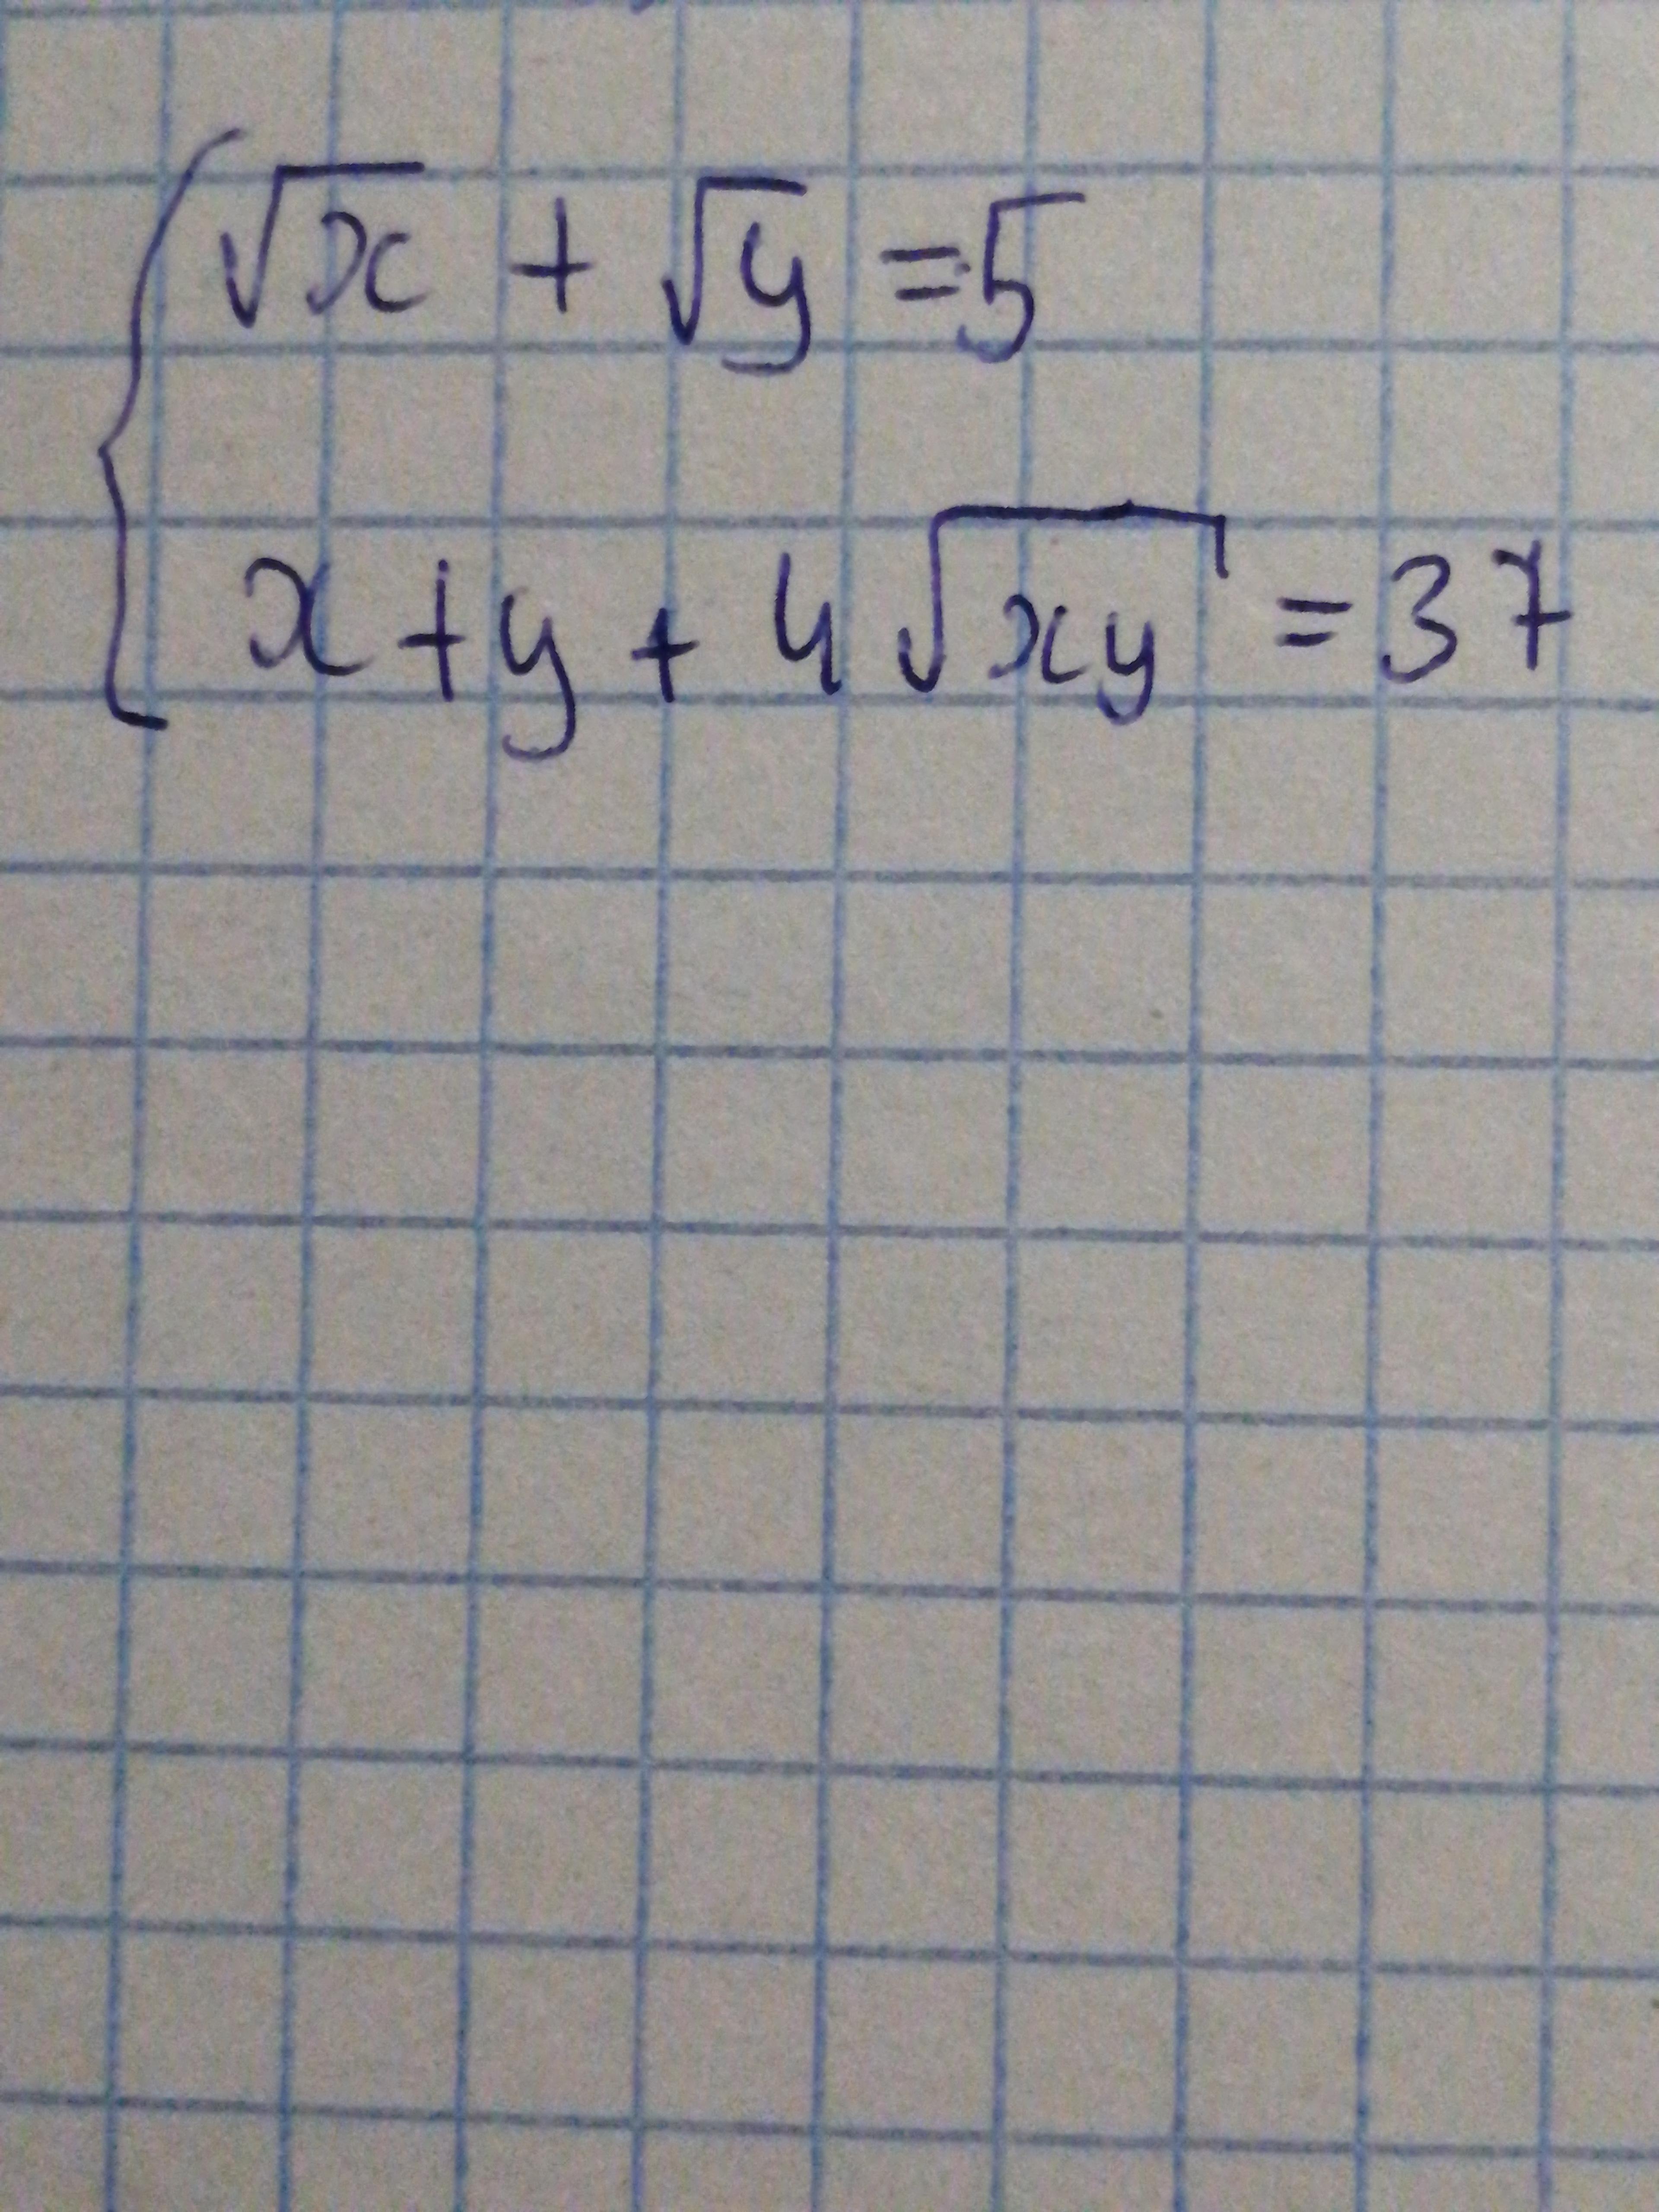 √x + √y = 5
x + y + 4√xy = 37